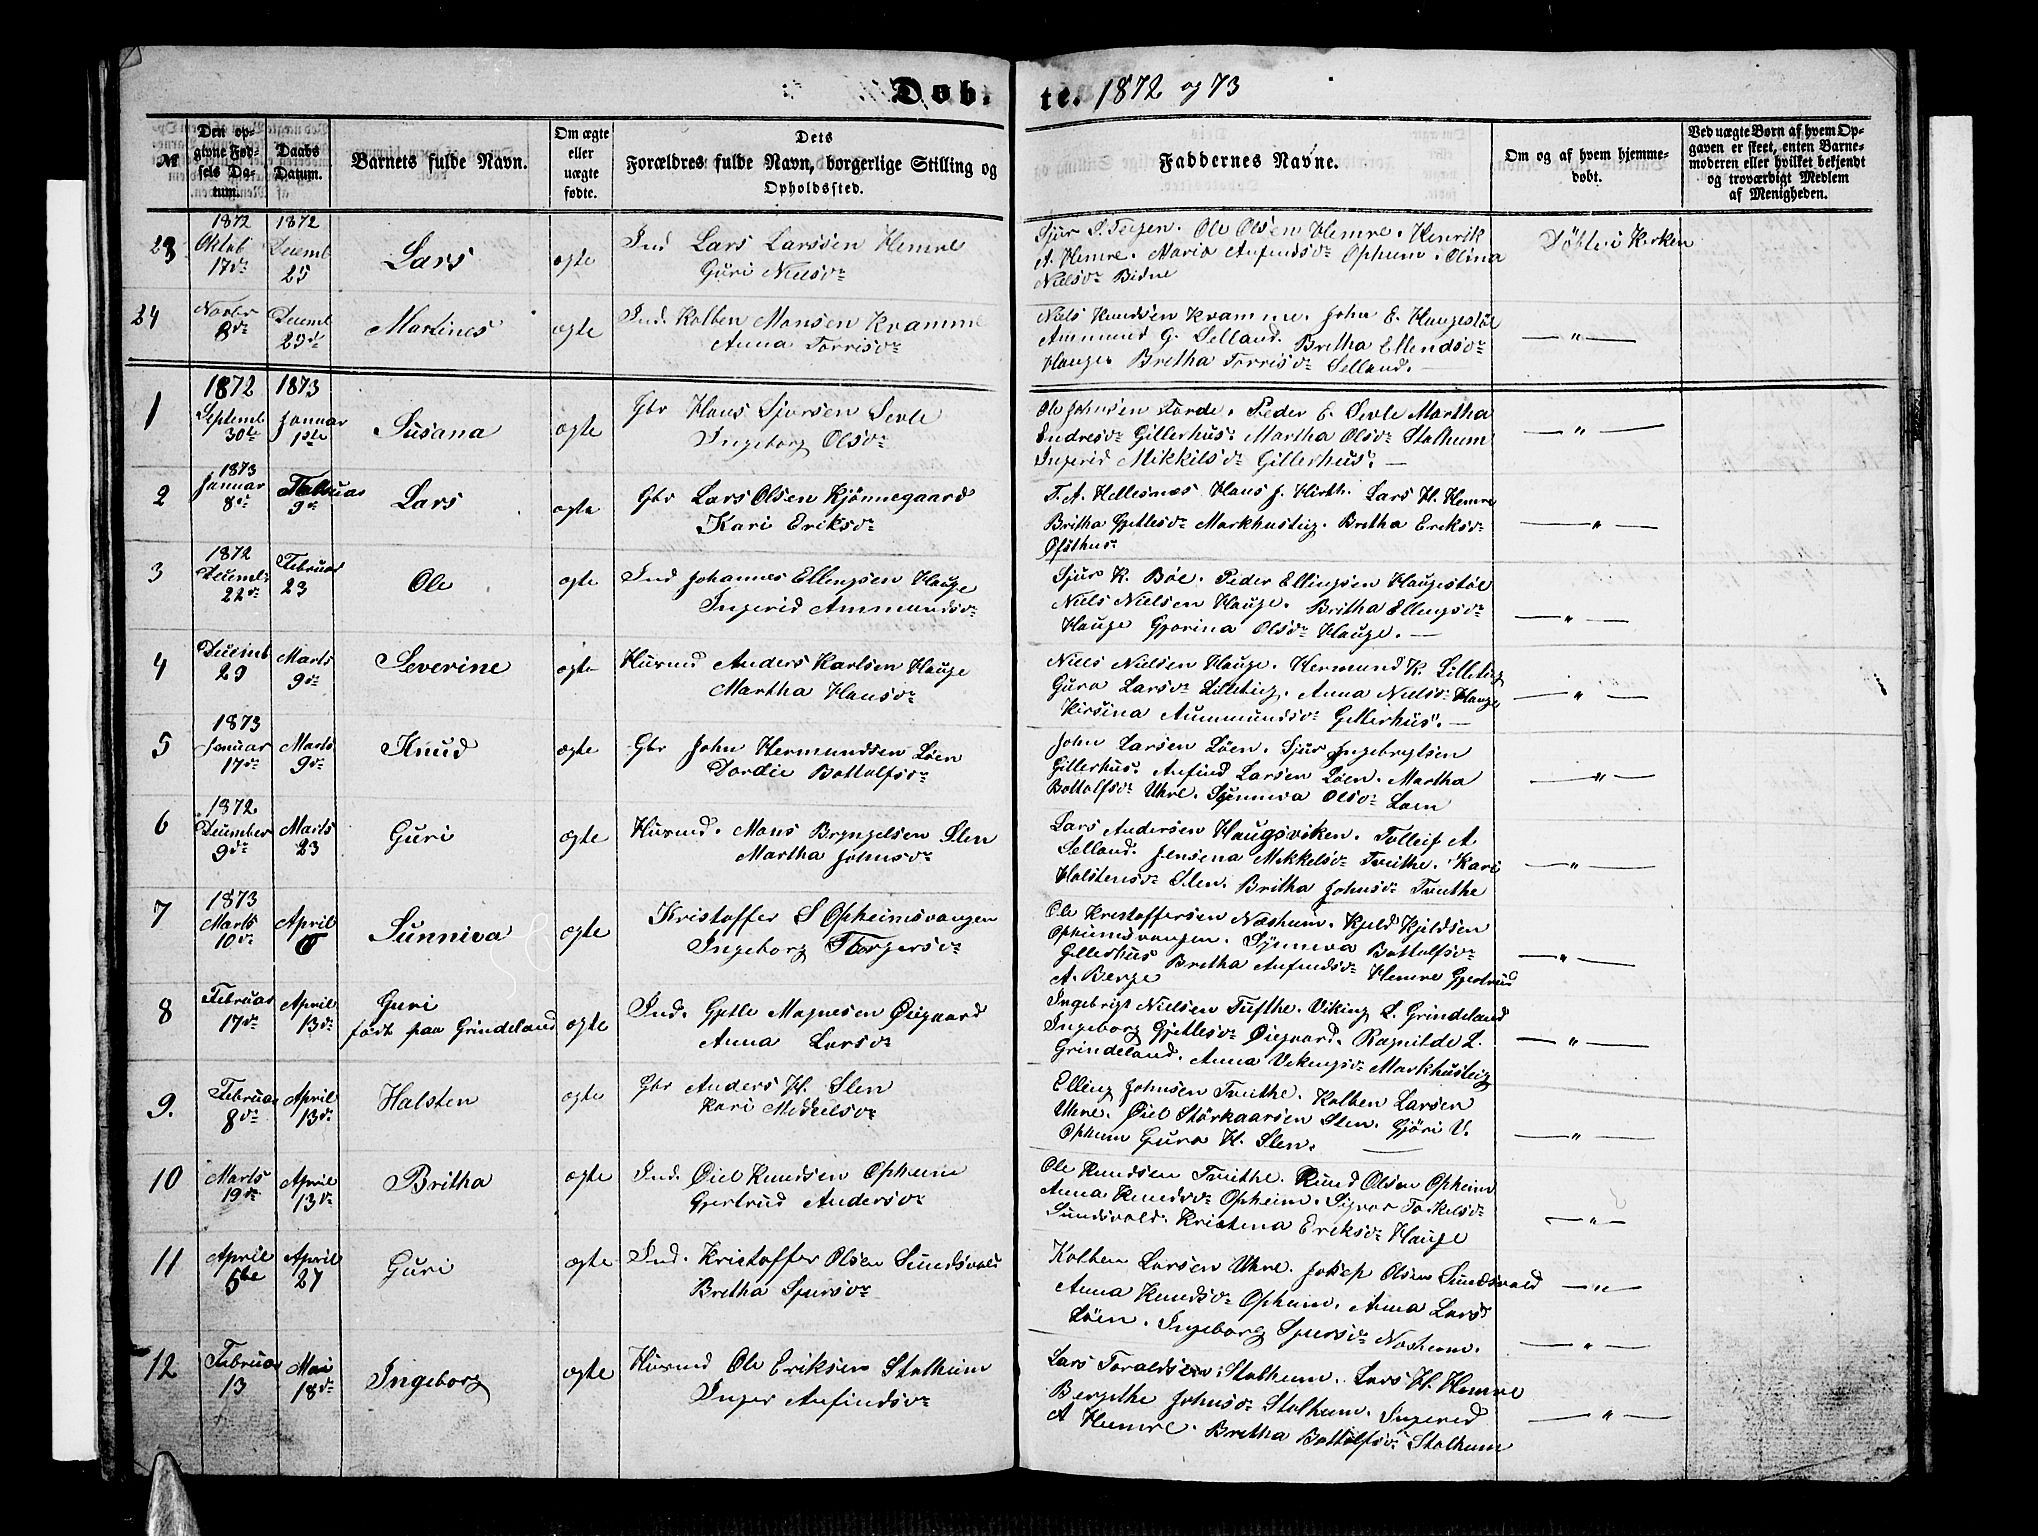 Døb-
te. 1872 og 73
№
Den op-
givne Fød-
sels Da-
tum.
Daabs
Datum.
Barnets fulde Navn.
Om ægte
eller
uægte
fødte.
Dets
Forældres fulde Navn, borgerlige Stilling og
Opholdssted.
Faddernes Navne.
Om og af hvem hjemme-
døbt.
Ved uægte Børn af hvem Op-
gaven er skeet, enten Barne-
moderen eller hvilket bekjendt
og troværdigt Medlem
af Menigheden.
23
1872
Oktob
17de
1872
Decemb
25
Lars
ægte
Ind Lars Larssen Hemre
Guri Nielsdr
Sjur S. Tugen. Ole Olsen Hemre. Henrik
A. Hemre. Maria Anfindsdr Opheim. Olina
Nielsdr Bidne
Døbt i Kirken
24
Novbr
8de
Decemb
29de
Martines
ægte
Ind. Kolben Monsen Kvamme
Anna Torrisdr
Niels Knudsen Kvamme. John E. Haugestøl
Ammund G. Selland. Britha Ellendsdr
Hauge Britha Torrisdr Selland. —
— " —
1
1872
Septemb
30te
1873
Januar
1ste
Susana
ægte
Gbr Hans Sjursen Sevle
Ingeborg Olsdr
Ole Johnsen Førde. Peder E. Sevle Martha
Endresdr Gillerhus. Martha Olsdr Stalheim
Ingerid Mikkelsdr Gillerhus. —
— " —
2
1873
Januar
8de
Februar
9de
Lars
ægte
Gbr Lars Olsen Kjønnegaard
Kari Eriksdr
T. A. Hellesnæs Hans J. Hirth. Lars H. Hemre
Britha Gjetlesdr Markhusteig. Britha Eriksdr
Øfsthus
— " —
3
1872
Decemb
22de
Februar
23
Ole
ægte
Ind Johannes Ellingsen Hauge
Ingerid Ammundsdr
Sjur K. Bøe. Peder Ellingsen Haugestøl
Niels Nielsen Hauge. Britha Ellingsdr
Hauge Gjorina Olsdr Hauge. —
— " —
4
Decemb
29
Marts
9de
Severine
ægte
Husmd Anders Karlsen Hauge
Martha Hansdr
Niels Nielsen Hauge. Hermund K. Lilleteig
Guro Larsdr Lilleteig. Anna Nielsdr Hauge
Kirsina Aummundsdr Gillerhus. —
— " —
5
1873
Januar
17de
Marts
9de
Knud
ægte
Gbr John Hermundsen Løen
Dordie Bottolfsdr
John Larsen Løen. Sjur Ingebrigtsen
Gillerhus. Anfind Larsen Løen. Martha
Bottolfsdr Uhre. Synneva Olsdr Løen
— " —
6
1872
December
9de
Marts
23
Guri
ægte
Husmd. Mons Bryngelsen Slen
Martha Johnsdr
Lars Andersen Haugsviken. Tolleif A
Selland. Jensena Mikkelsdr Tvinthe. Kari
Halstensdr Slen. Britha Johnsdr Tvinthe
— " —
7
1873
Marts
10de
April
6
Sunniva
ægte
Kristoffer S Opheimsvangen
Ingeborg Thorgersdr
Ole Kristoffersen Næsheim. Kjeld Kjeldsen
Opheimsvangen. Synneva Bottolfsdr
Gillerhus Britha Anfindsdr Hemre Gjertrud
A. Berge
— " —
8
Februar
17de
April
13de
Guri
født paa Grindeland
ægte
Ind. Gjetle Magnesen Øiegaard
Anna Larsdr
Ingebrigt Nielsen Tufthe. Viking L. Grindeland
Ingeborg Gjetlesdr Øiegaard. Ragnilde L.
Grindeland. Anna Vikingsdr Markhusteig
— " —
9.
Februar
8de
April
13de
Halsten
ægte
Gbr Anders H. Slen
Kari Mikkelsdr
Elling Johnsen Tvinthe. Kolben Larsen
Uhre. Øiel Størkaarsen Slen. Gjøri V.
Opheim Guro H. Slen. —
— " —
10
Marts
19de
April
13de
Britha
ægte
Ind. Øiel Knudsen Opheim
Gjertrud Andersdr
Ole Knudsen Tvinthe. Knud Olsen Opheim
Anna Knudsdr Opheim. Signor Torkelsdr
Sundsvold. Kristina Eriksdr Hauge
— " —
11
April
5te
April
27
Guri
ægte
Ind. Kristoffer Olsen Sundsvold
Britha Sjursdr
Kolben Larsen Uhre. Josep Olsen Sundsvold
Anna Knudsdr Opheim. Anna Larsd
Løen. Ingeborg Sjursdr Næsheim.
— " —
— " —
12
Februar
13
Mai
18de
Ingeborg
ægte
Husmd Ole Eriksen Stalheim
Inger Anfindsdr
Lars Toraldsen Stalheim. Lars H. Hemre
Bergithe Johnsdr Stalheim. Ingerid
A Hemre. Britha Bottolfsdr Stalheim
— " —